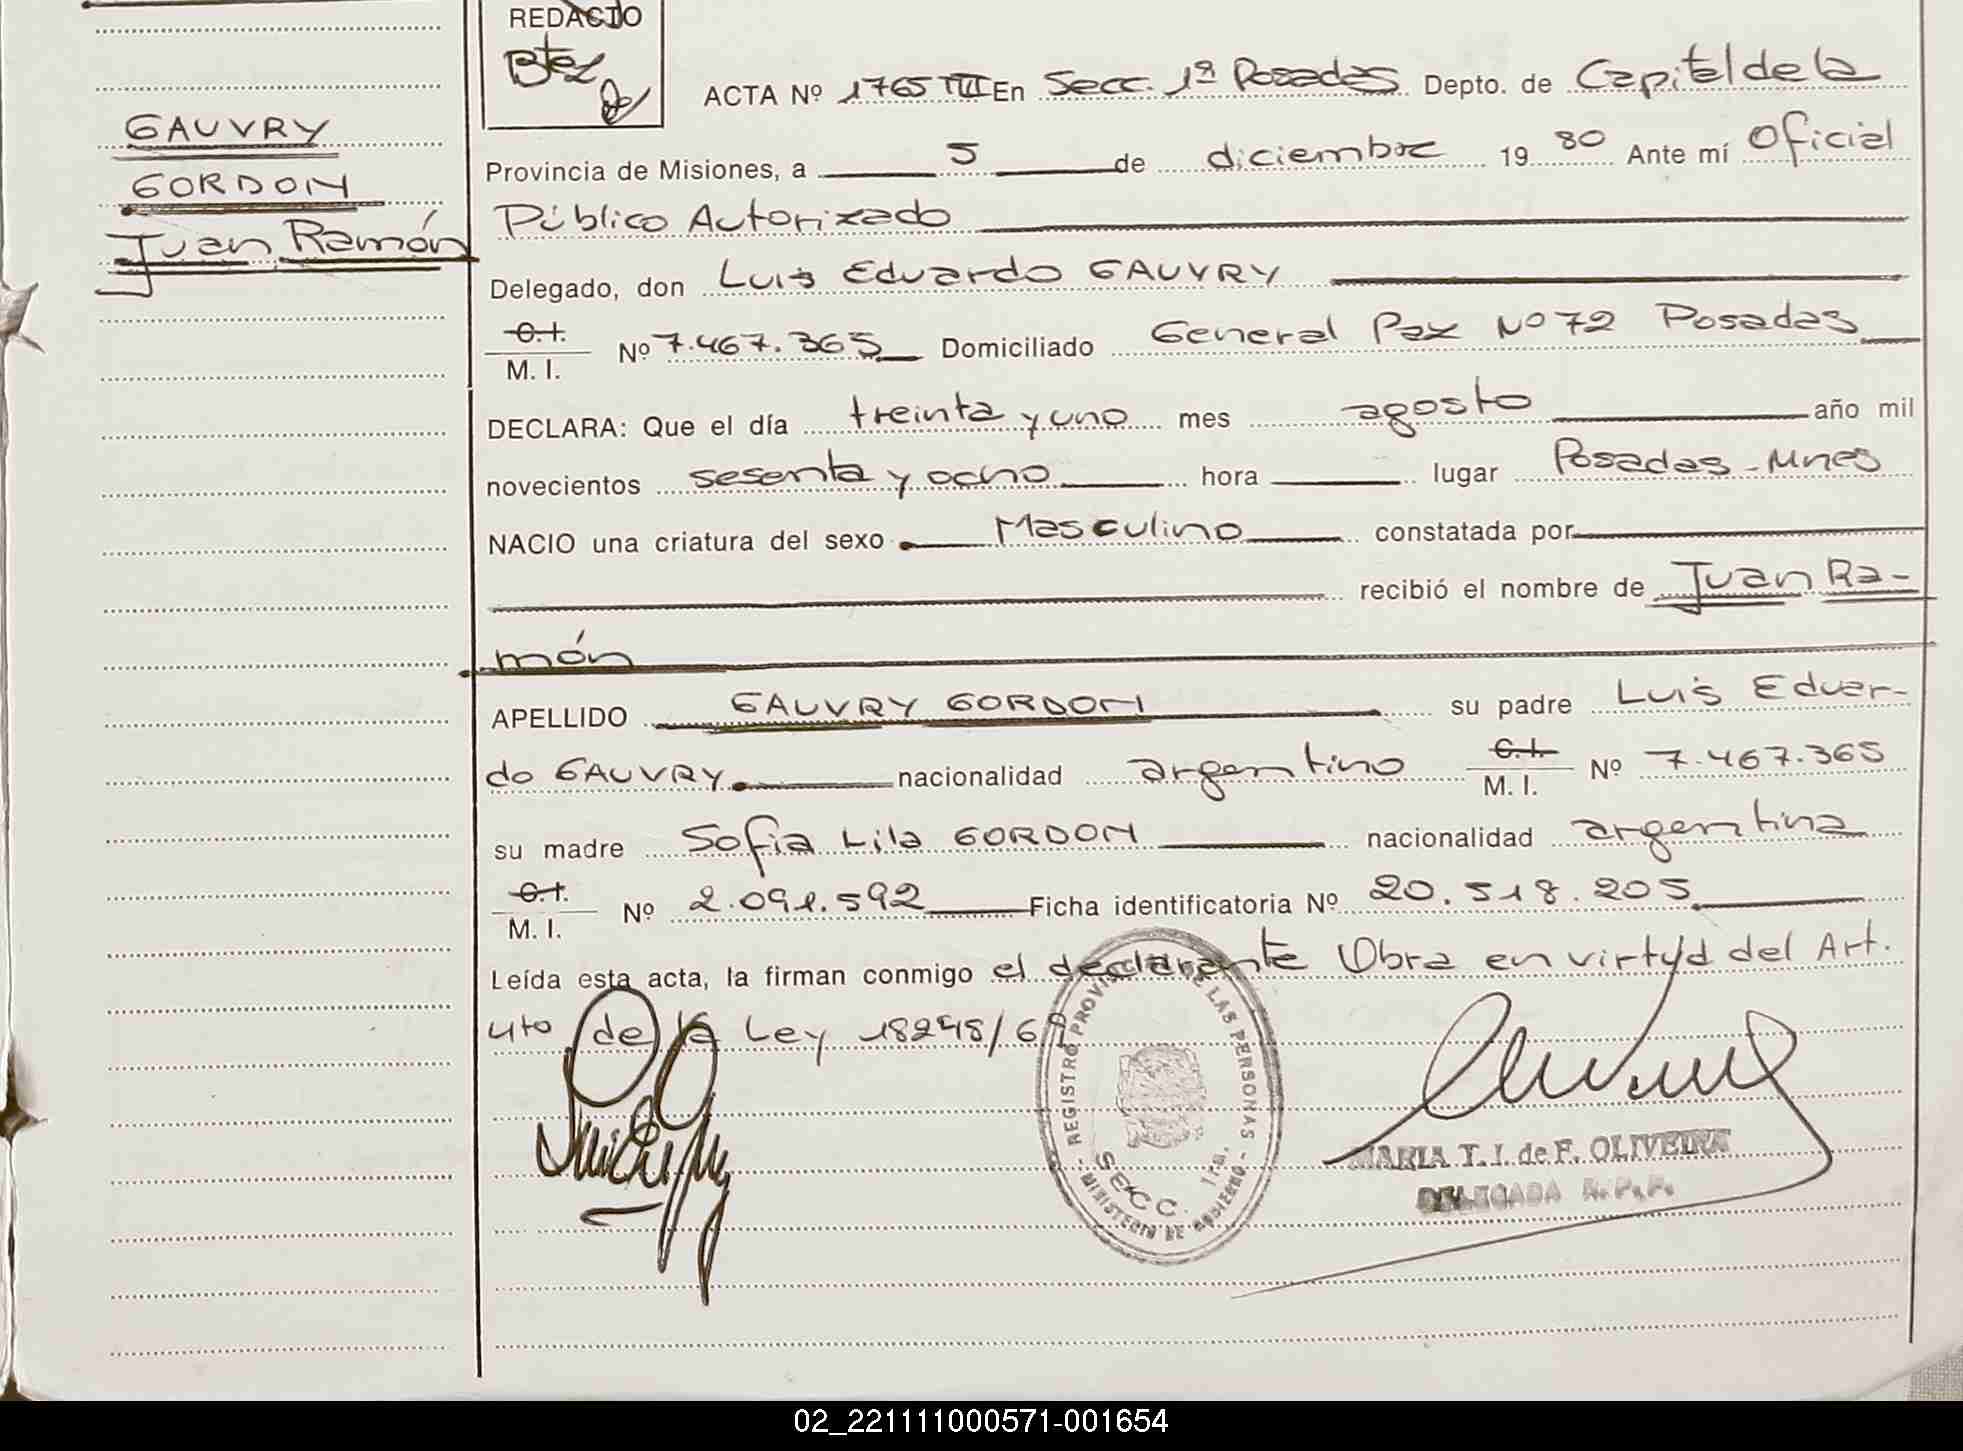 REDACTO
GAUVRY
GORDON
Juan Ramón
ACTA Nº 1765 TIII En Secc. 1ª Posadas Depto. de Capital de la
Provincia de Misiones, a 5 de diciembre 19 80 Ante mí Oficial
Público Autorizado
Delegado, don Luis Eduardo GAUVRY
C.I.
M. I. Nº 7.467.365 Domiciliado General Paz Nº 72 Posadas
DECLARA: Que el día treinta y uno mes agosto año mil
novecientos sesenta y ocho hora lugar Posadas - Mnes
NACIO una criatura del sexo Masculino constatada por
recibió el nombre de Juan Ra-
món
APELLIDO GAUVRY GORDON su padre Luis Eduar-
do GAUVRY nacionalidad argentino C.I. M. I. Nº 7.467.365
su madre Sofia Lila GORDON nacionalidad argentina
C.I.
M. I. Nº 2.091.592 Ficha identificatoria Nº 20.518.205
Leída esta acta, la firman conmigo el declarante Obra en virtud del Art.
4to de la Ley 18248/69
REGISTRO PROVINCIAL DE LAS PERSONAS
SECC. 1ra.
- MINISTERIO DE GOBIERNO -
MARIA T. I. de F. OLIVEIRA
DELEGADA R. P. P.
02_221111000571-001654